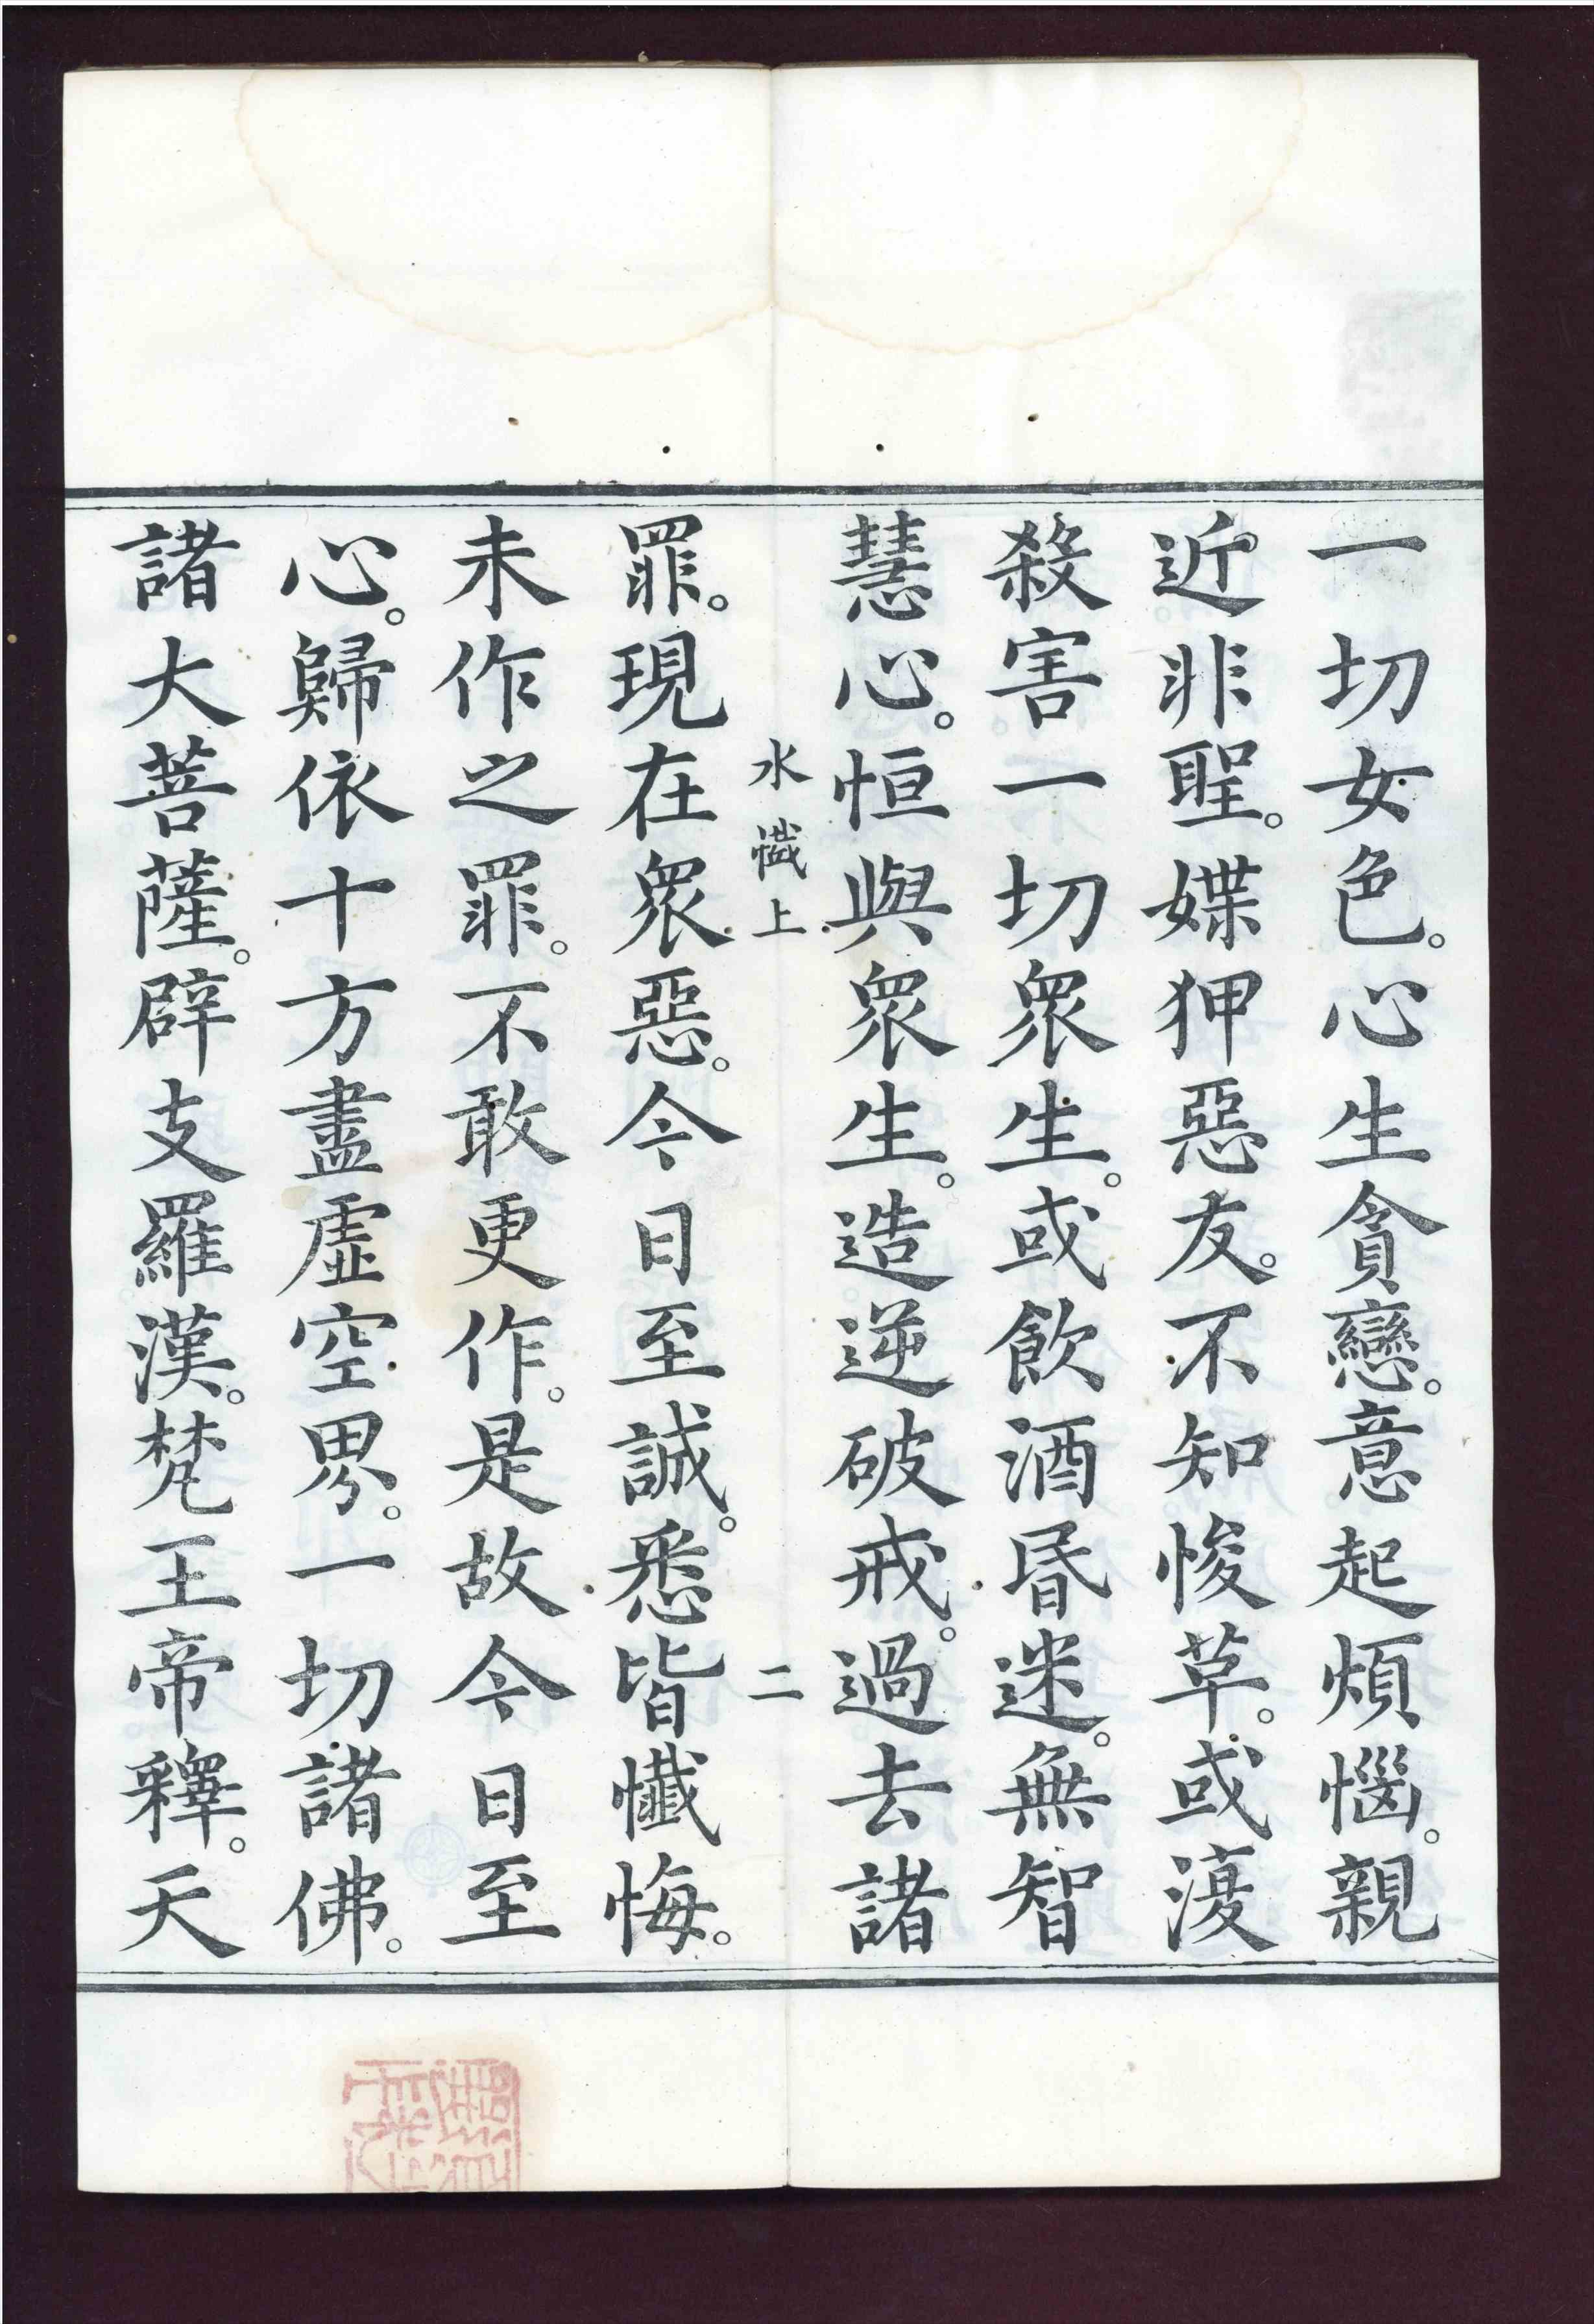 一切女色。心生貪戀。意起煩惱。親
近非聖。媟狎惡友。不知悛革。或復
殺害一切眾生。或飲酒昏迷。無智
慧心。恒與眾生。造逆破戒。過去諸
水懺上 二
罪。現在眾惡。今日至誠。悉皆懺悔。
未作之罪。不敢更作。是故今日至
心。歸依十方盡虛空界。一切諸佛。
諸大菩薩。辟支羅漢。梵王帝釋。天